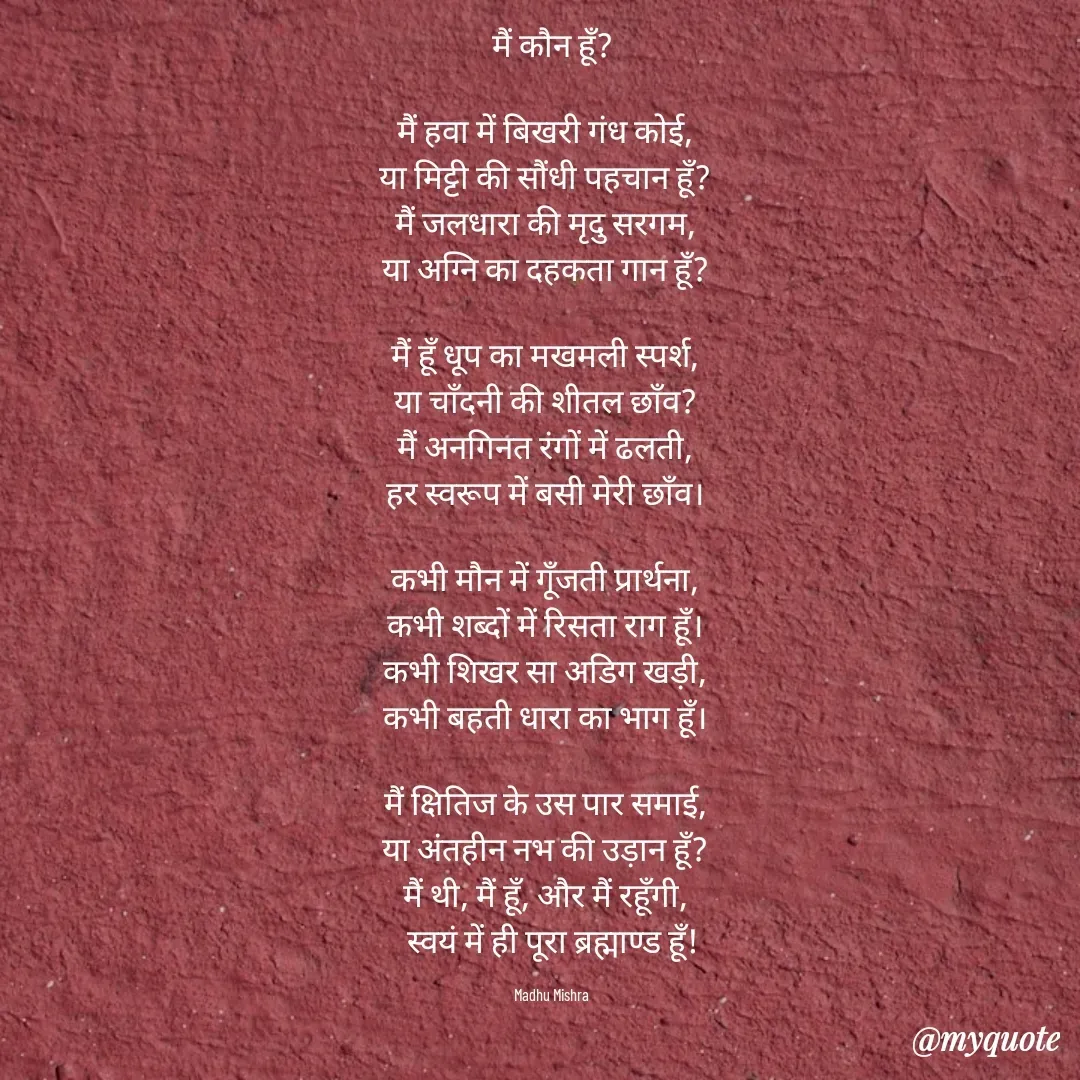 मैं कौन हूँ?
मैं हवा में बिखरी गंध कोई,
या मिट्टी की सौंधी पहचान हूँ?
मैं जलधारा की मृदु सरगम,
या अग्नि का दहकता गान हूँ?
मैं हूँ धूप का मखमली स्पर्श,
या चाँदनी की शीतल छाँव?
मैं अनगिनत रंगों में ढलती,
हर स्वरूप में बसी मेरी छाँव।
कभी मौन में गूँजती प्रार्थना,
कभी शब्दों में रिसता राग हूँ।
कभी शिखर सा अडिग खड़ी,
कभी बहती धारा का भाग हूँ।
मैं क्षितिज के उस पार समाई,
या अंतहीन नभ की उड़ान हूँ?
मैं थी, मैं हूँ, और मैं रहूँगी,
स्वयं में ही पूरा ब्रह्माण्ड हूँ!
Madhu Mishra
@myquote